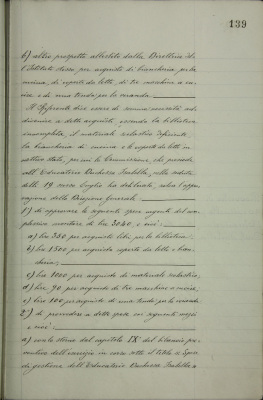 139
6) altro prospetto allestito dalla Direttrice de
l'Istituto stesso per acquisto di biancheria per la
cucina, di coperte da letto, di tre macchine a cu-
cire e di una tenda per la veranda.
Il Referente dice essere di somma necessità ad-
divenire a detti acquisti essendo la biblioteca
incompleta, il materiale scolastico deficiente
la biancheria di cucina e le coperte da letto in
cattivo stato, per cui la Commissione, che presiede
all'Educatorio Duchessa Isabella, nella seduta
delle 19 corso luglio ha deliberato, salva l'appro-
vazione della Direzione Generale:
1°) di approvare le seguenti spese urgenti del com-
plessivo montare di lire 3040, e cioè:
a) lire 350 per acquisto libri per la biblioteca;
b) lire 1500 per acquisto coperte da letto e bian-
cheria;
c) lire 1000 per acquisto di materiale scolastico;
d) lire 90 per acquisto di tre macchine a cucire;
e) lire 100 per acquisto di una tenda per la veranda
2°) di provvedere a dette spese coi seguenti mezzi
e cioè:
a) con lo storno dal capitolo IX del bilancio pre-
ventivo dell'esercizio in corso sotto il titolo a Spese
di gestione dell'Educatorio Duchessa Isabella